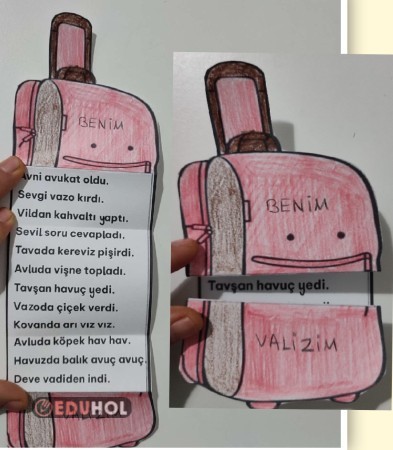 BENİM
Avni avukat oldu.
Sevgi vazo kırdı.
Vildan kahvaltı yaptı.
Sevil soru cevapladı.
Tavada kereviz pişirdi.
Avluda vişne topladı.
Tavşan havuç yedi.
Vazoda çiçek verdi.
Kovanda arı vız vız.
Avluda köpek hav hav.
Havuzda balık avuç avuç.
Deve vadiden indi.
EDUHOL
BENİM
Tavşan havuç yedi.
VALİZİM